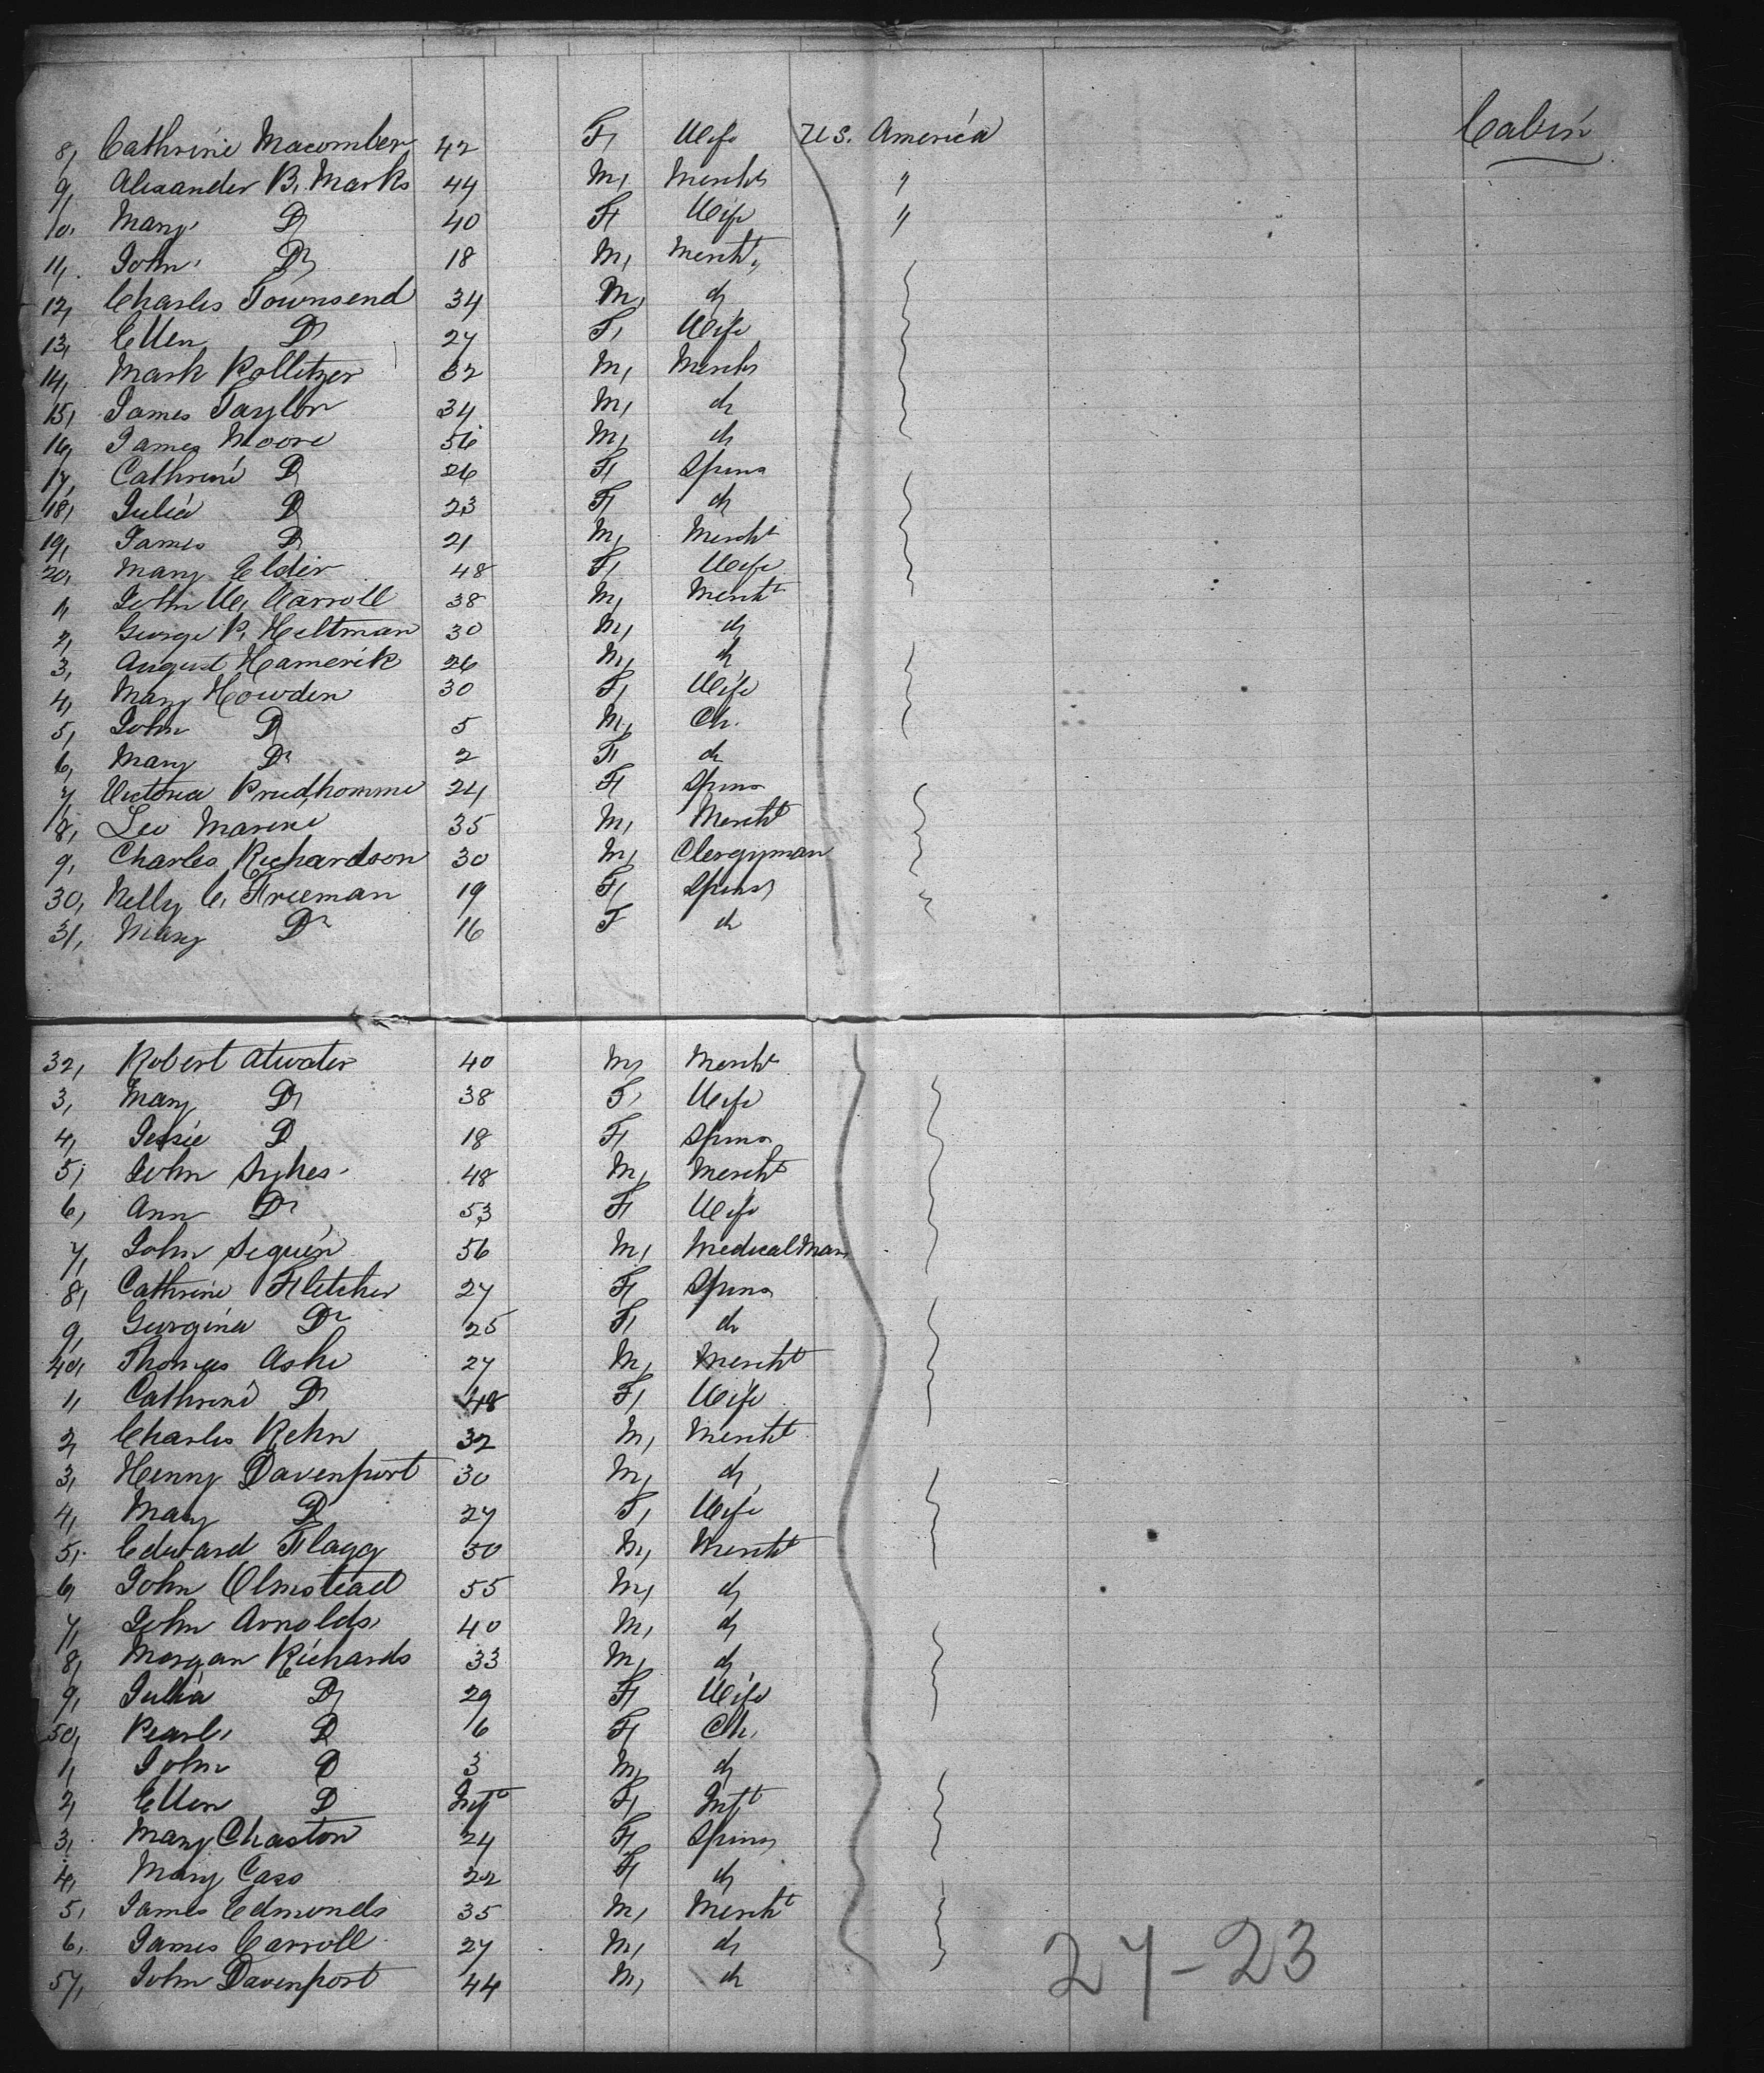 8, Cathrine Macomber 42 F, Wife U.S. America Cabin
9, Alexander B. Marks 44 M, Mercht "
10, Mary Do 40 F, Wife "
11, John Do 18 M, Mercht
12, Charles Townsend 34 M, do
13, Ellen Do 27 F, Wife
14, Mark Pollitzer 32 M, Mercht
15, James Taylor 34 M, do
16, James Moore 56 M, do
17, Cathrine Do 26 F, Spins
18, Julia Do 23 F, do
19, James Do 21 M, Mercht
20, Mary Elder 48 F, Wife
1, John W. Carroll 38 M, Mercht
2, George P. Heltman 30 M, do
3, August Hamerik 26 M, do
4, Mary Howden 30 F, Wife
5, John Do 5 M, Ch.
6, Mary Do 2 F, do
7, Victoria Prudhomme 24 F, Spins
8, Leo Marine 35 M, Mercht
9, Charles Richardson 30 M, Clergyman
30, Nelly C. Freeman 19 F, Spins
31, Mary Do 16 F do
32, Robert Atwater 40 M, Mercht
3, Mary Do 38 F, Wife
4, Jessie Do 18 F, Spins
5, John Sykes 48 M, Mercht
6, Ann Do 53 F, Wife
7, John Seguin 56 M, Medical Man
8, Cathrine Fletcher 27 F, Spins
9, Georgina Do 25 F, do
40, Thomas Ashe 27 M, Mercht
1, Cathrine Do 48 F, Wife
2, Charles Rehn 32 M, Mercht
3, Henry Davenport 30 M, do
4, Mary Do 27 F, Wife
5, Edward Flagg 30 M, Mercht
6, John Olmstead 55 M, do
7, John Arnolds 40 M, do
8, Morgan Richards 33 M, do
9, Julia Do 29 F, Wife
50, Pearl Do 6 F, Ch,
1, John Do 3 M, do
2, Ellen Do Inft F, Inft
3, Mary Chaston 24 F, Spins
4, Mary Cass 22 F, do
5, James Edmonds 35 M, Mercht
6, James Carroll 27 M, do
57, John Davenport 44 M, do
27-23